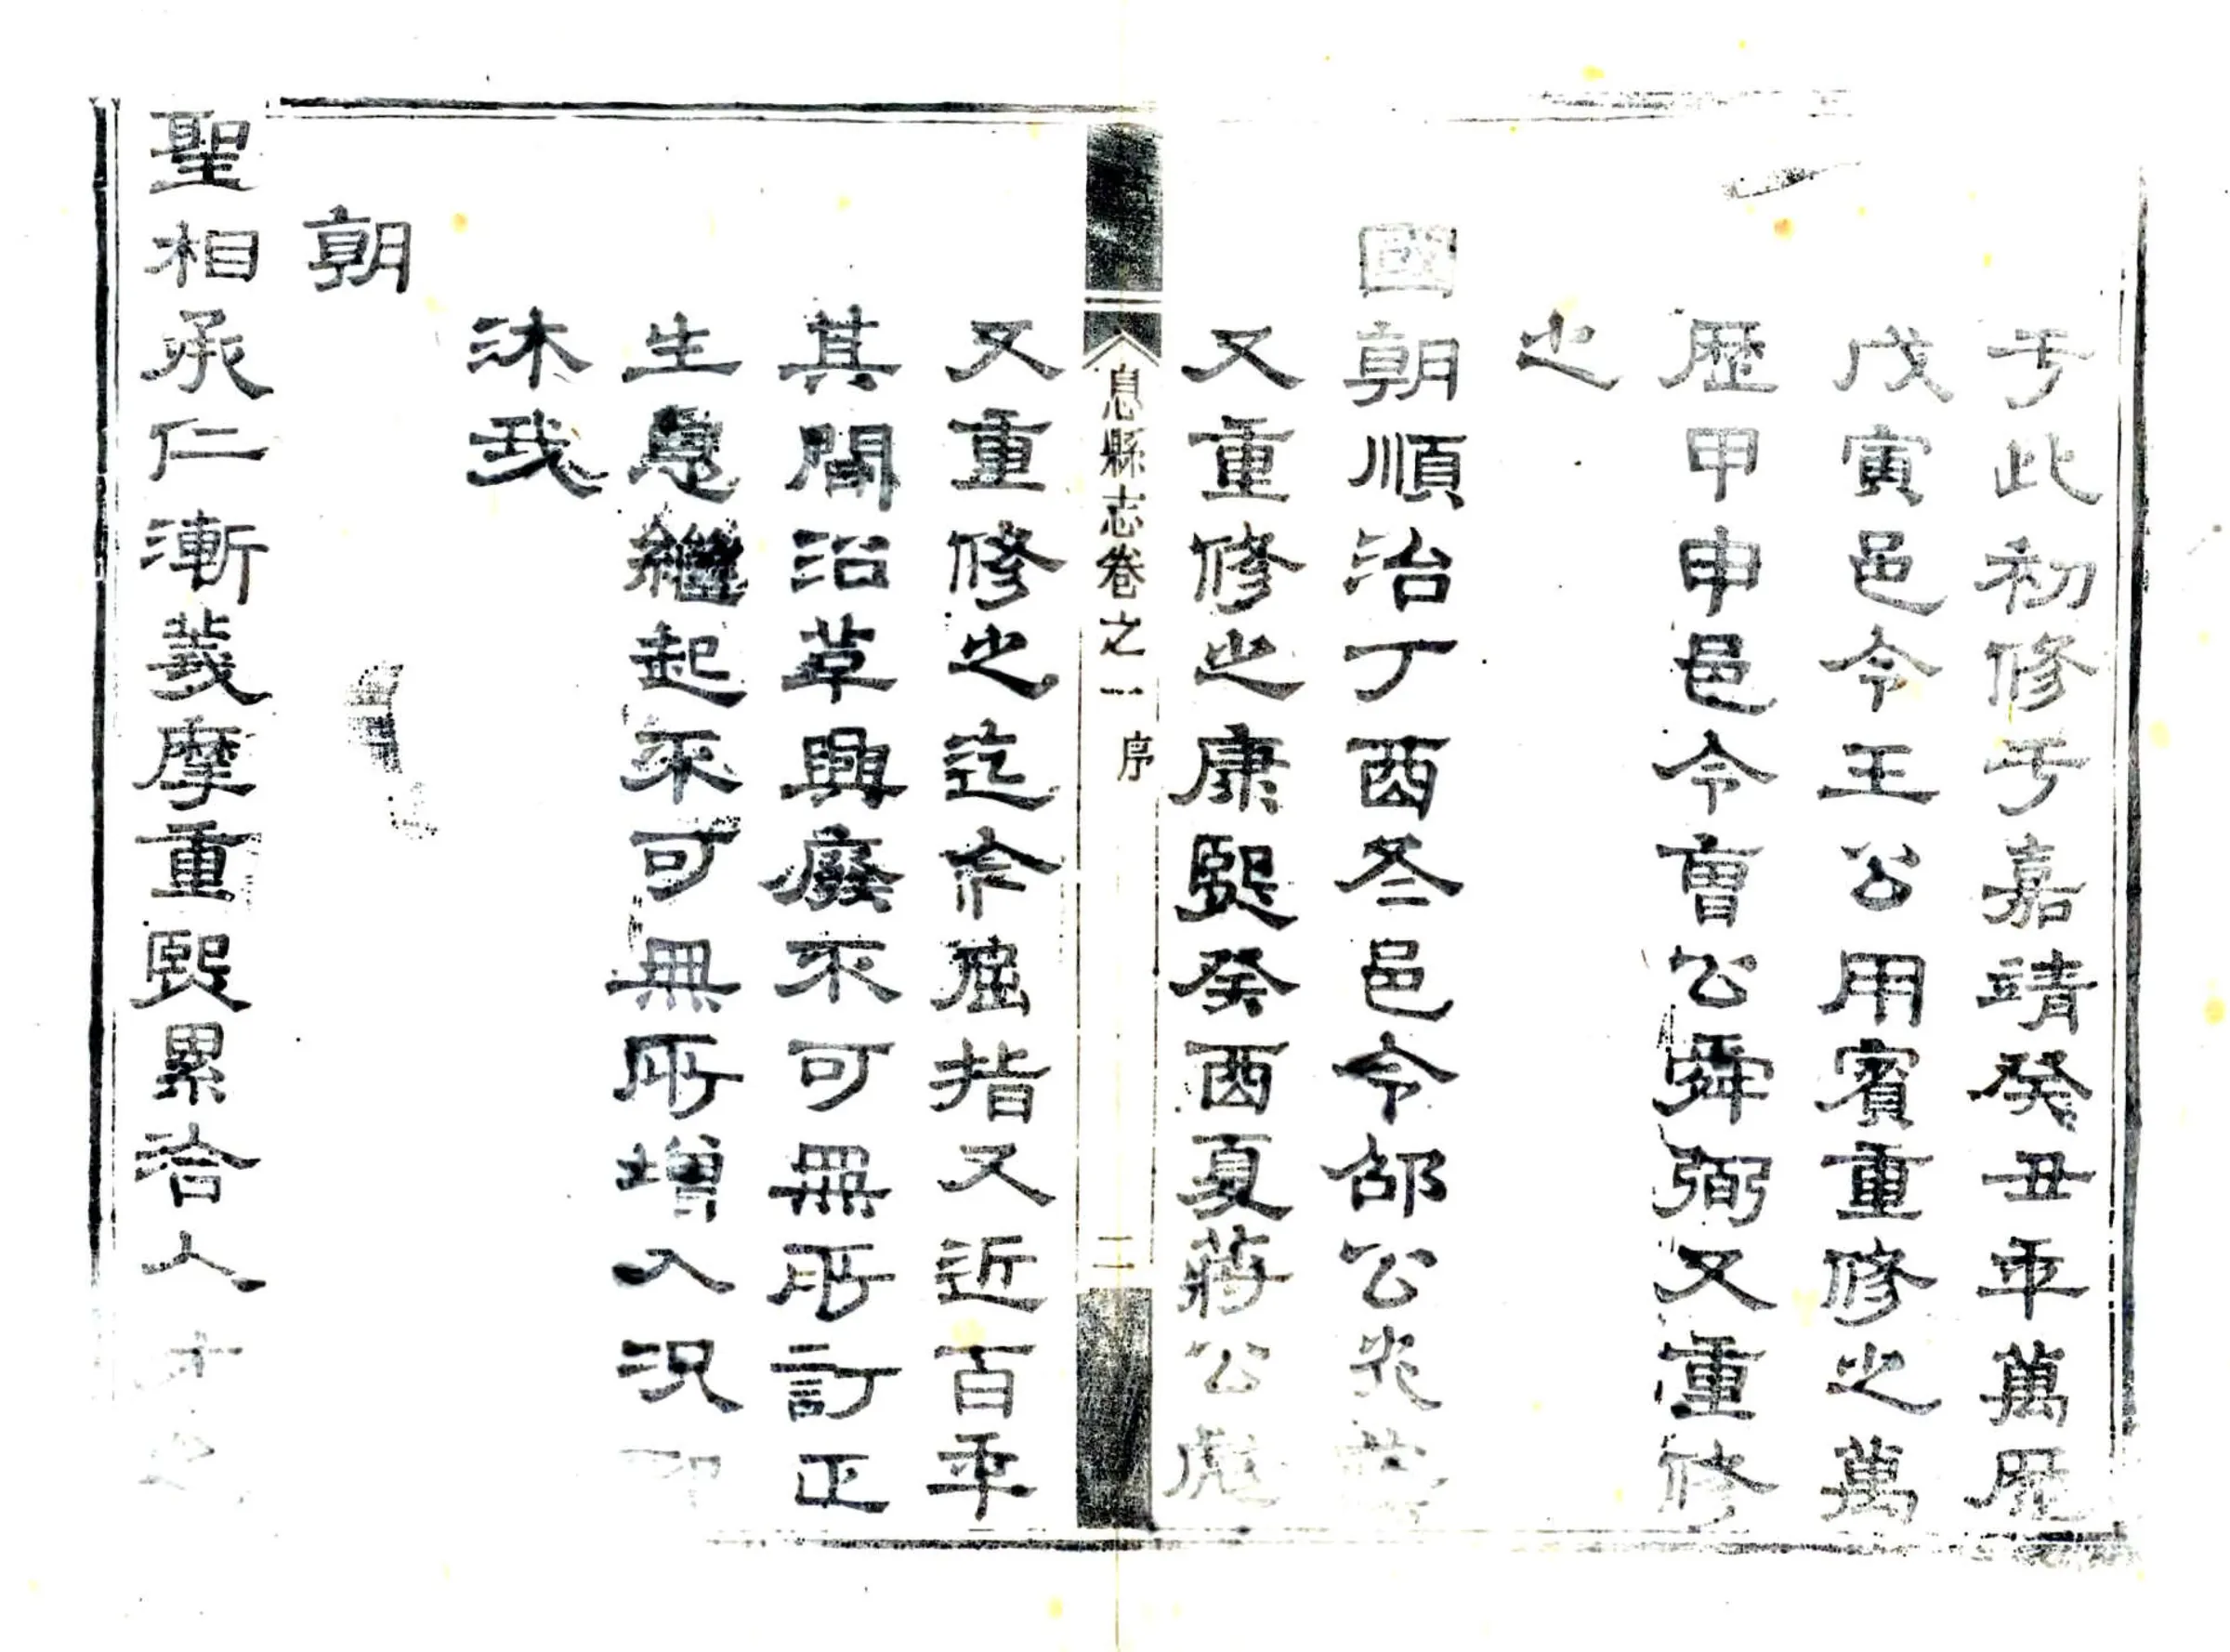 于此初修于嘉靖癸丑年萬歷
戊寅邑令王公用賓重修之萬
歷甲申邑令曹公舜弼又重修
之
國朝順治丁酉冬邑令邵公光
又重修之康熙癸酉夏蔣公彪
息縣志卷之一 序 二
又重修之迄今屈指又近百年
其間沿革興廢不可無所訂正
生息繼起不可無所增入況
沐我
朝
聖相承仁漸義摩重熙累洽人才